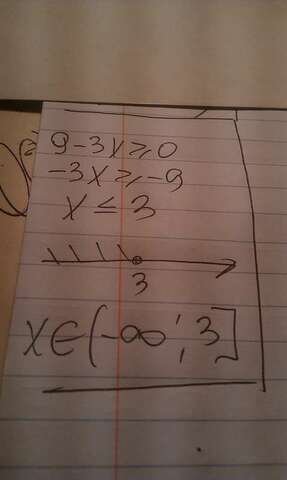 9-3x≥0
-3x≥-9
x≤3
3
x∈(-∞;3]